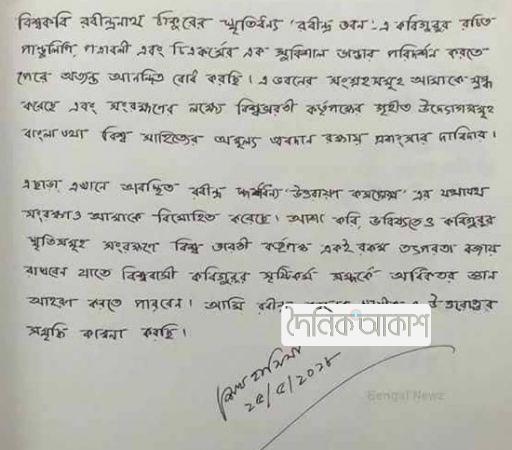 বিশ্বকবি রবীন্দ্রনাথ ঠাকুরের স্মৃতিধন্য 'রবীন্দ্র ভবন'-এ কবিগুরুর রচিত
পাণ্ডুলিপি, পত্রাবলী এবং চিত্রকর্মের এক সুবিশাল ভান্ডার পরিদর্শন করতে
পেরে অত্যন্ত আনন্দিত বোধ করছি। এ ভবনের সংগ্রহসমূহ আমাকে মুগ্ধ
করেছে এবং সংরক্ষণের লক্ষ্যে বিশ্বভারতী কর্তৃপক্ষের গৃহীত উদ্যোগসমূহ
বাংলা তথা বিশ্ব সাহিত্যের অমূল্য অবদান রক্ষায় প্রশংসার দাবিদার।
এছাড়া এখানে অবস্থিত রবীন্দ্র স্পর্শধন্য 'উত্তরায়ণ কমপ্লেক্স' এর যথাযথ
সংরক্ষণও আমাকে বিমোহিত করেছে। আশা করি, ভবিষ্যতেও কবিগুরুর
স্মৃতিসমূহ সংরক্ষণে বিশ্ব ভারতী কর্তৃপক্ষ একই রকম তৎপরতা বজায়
রাখবেন যাতে বিশ্ববাসী কবিগুরুর সৃষ্টিকর্ম সম্পর্কে অধিকতর জ্ঞান
আহরণ করতে পারবেন। আমি উত্তরোত্তর
সমৃদ্ধি কামনা করছি।
দৈনিক আকাশ
শেখ হাসিনা
২৫/৫/২০১৮
Bengal Newz